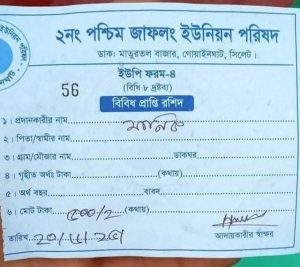 ২নং পশ্চিম জাফলং ইউনিয়ন পরিষদ
ডাক: মাতুরতল বাজার, গোয়াইনঘাট, সিলেট।
ইউপি ফরম-৪
(বিধি ৮ দ্রষ্টব্য)
56
বিবিধ প্রাপ্তি রশিদ
১। প্রদানকারীর নাম মানিক
২। পিতা/স্বামীর নাম
৩। গ্রাম/মৌজার নাম ডাকঘর
৪। গৃহীত অর্থঃ টাকা (কথায়)
৫। অর্থ বছর বাবদ
৬। মোট টাকা ৫০০/= (কথায়)
তারিখ
আদায়কারীর স্বাক্ষর